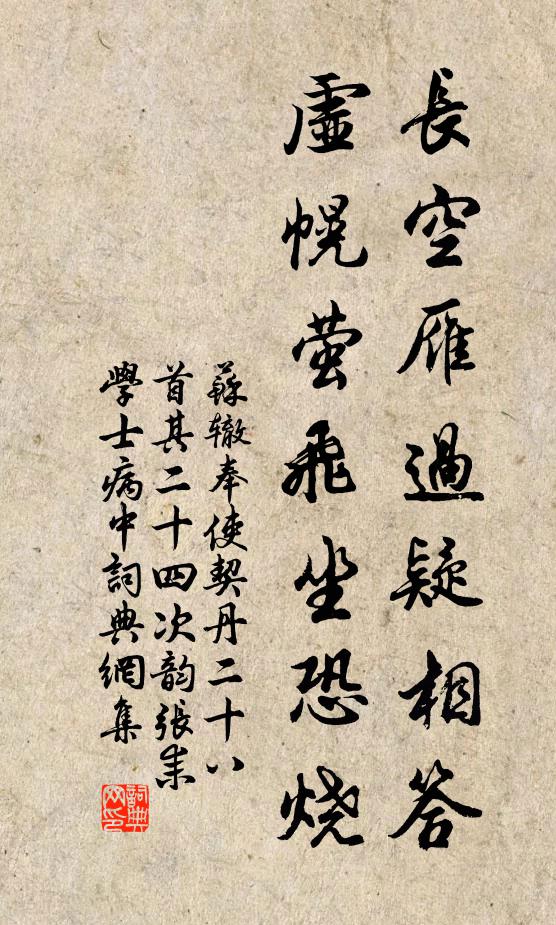 長空雁過疑相答
虛幌萤飛坐恐烧
蘇辙奉使契丹二十八
首其二十四次韵張耒
學士病中詞典網集
詞典
网印